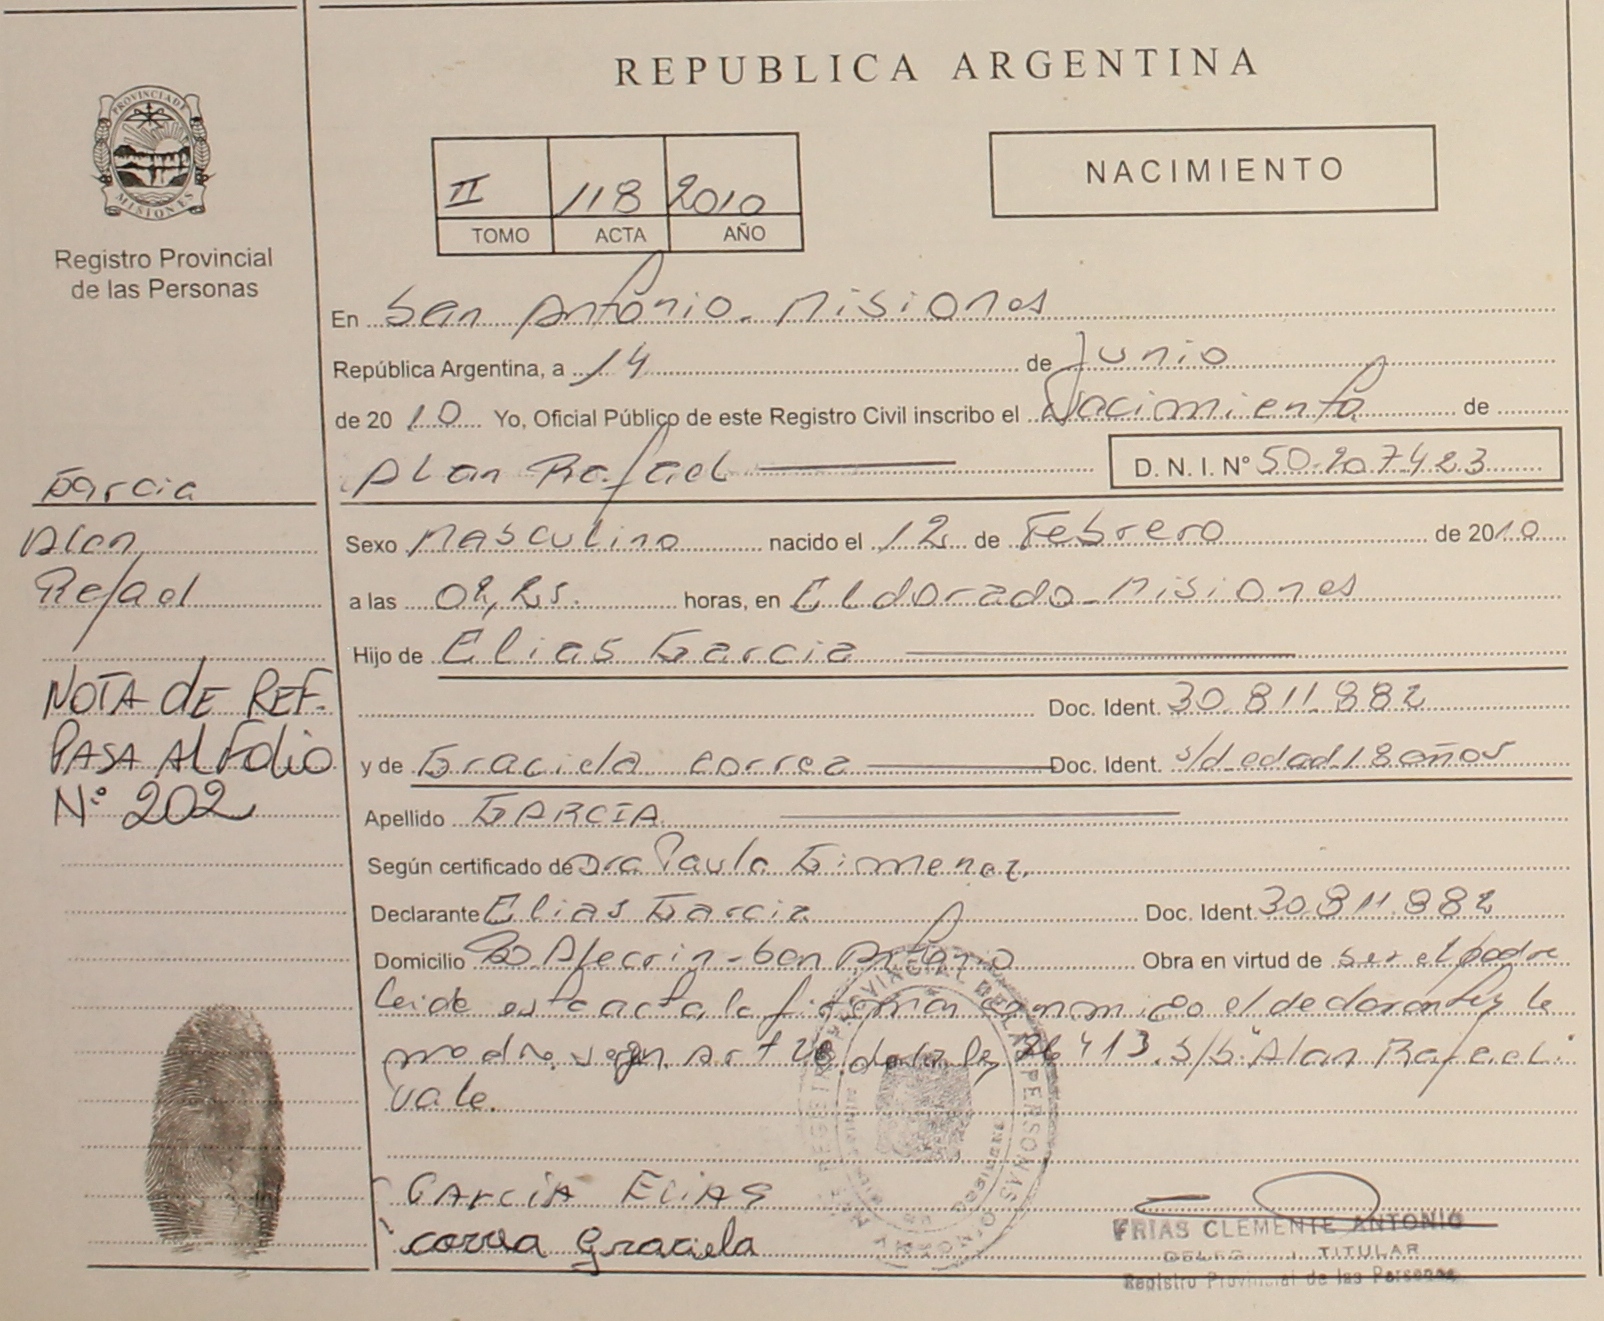 REPUBLICA ARGENTINA
PROVINCIA DE MISIONES
Registro Provincial
de las Personas
II 118 2010
TOMO ACTA AÑO
NACIMIENTO
En San Antonio - Misiones
República Argentina, a 14 de Junio
de 2010 Yo, Oficial Público de este Registro Civil inscribo el Nacimiento de
Alan Rafael D. N. I. N° 50.207423
Garcia
Alan
Rafael
NOTA de REF.
PASA Al Folio
N° 202
Sexo Masculino nacido el 12 de Febrero de 2010
a las 02,25. horas, en Eldorado - Misiones
Hijo de Elias Garcia
Doc. Ident. 30.811.882
y de Graciela Correa Doc. Ident. s/d edad 18 años
Apellido GARCIA
Según certificado de Dra Paula Gimenez,
Declarante Elias Garcia Doc. Ident. 30.811.882
Domicilio San Antonio Obra en virtud de ser el padre
Leida esta acta, la firman conmigo el declarante y la
madre, Art de la ley 413. S/S: Alan Rafael:
vale.
GARCIA ELIAS
correa Graciela
REGISTRO PROVINCIAL DE LAS PERSONAS
FRIAS CLEMENTE ANTONIO
TITULAR
Registro Provincial de las Personas